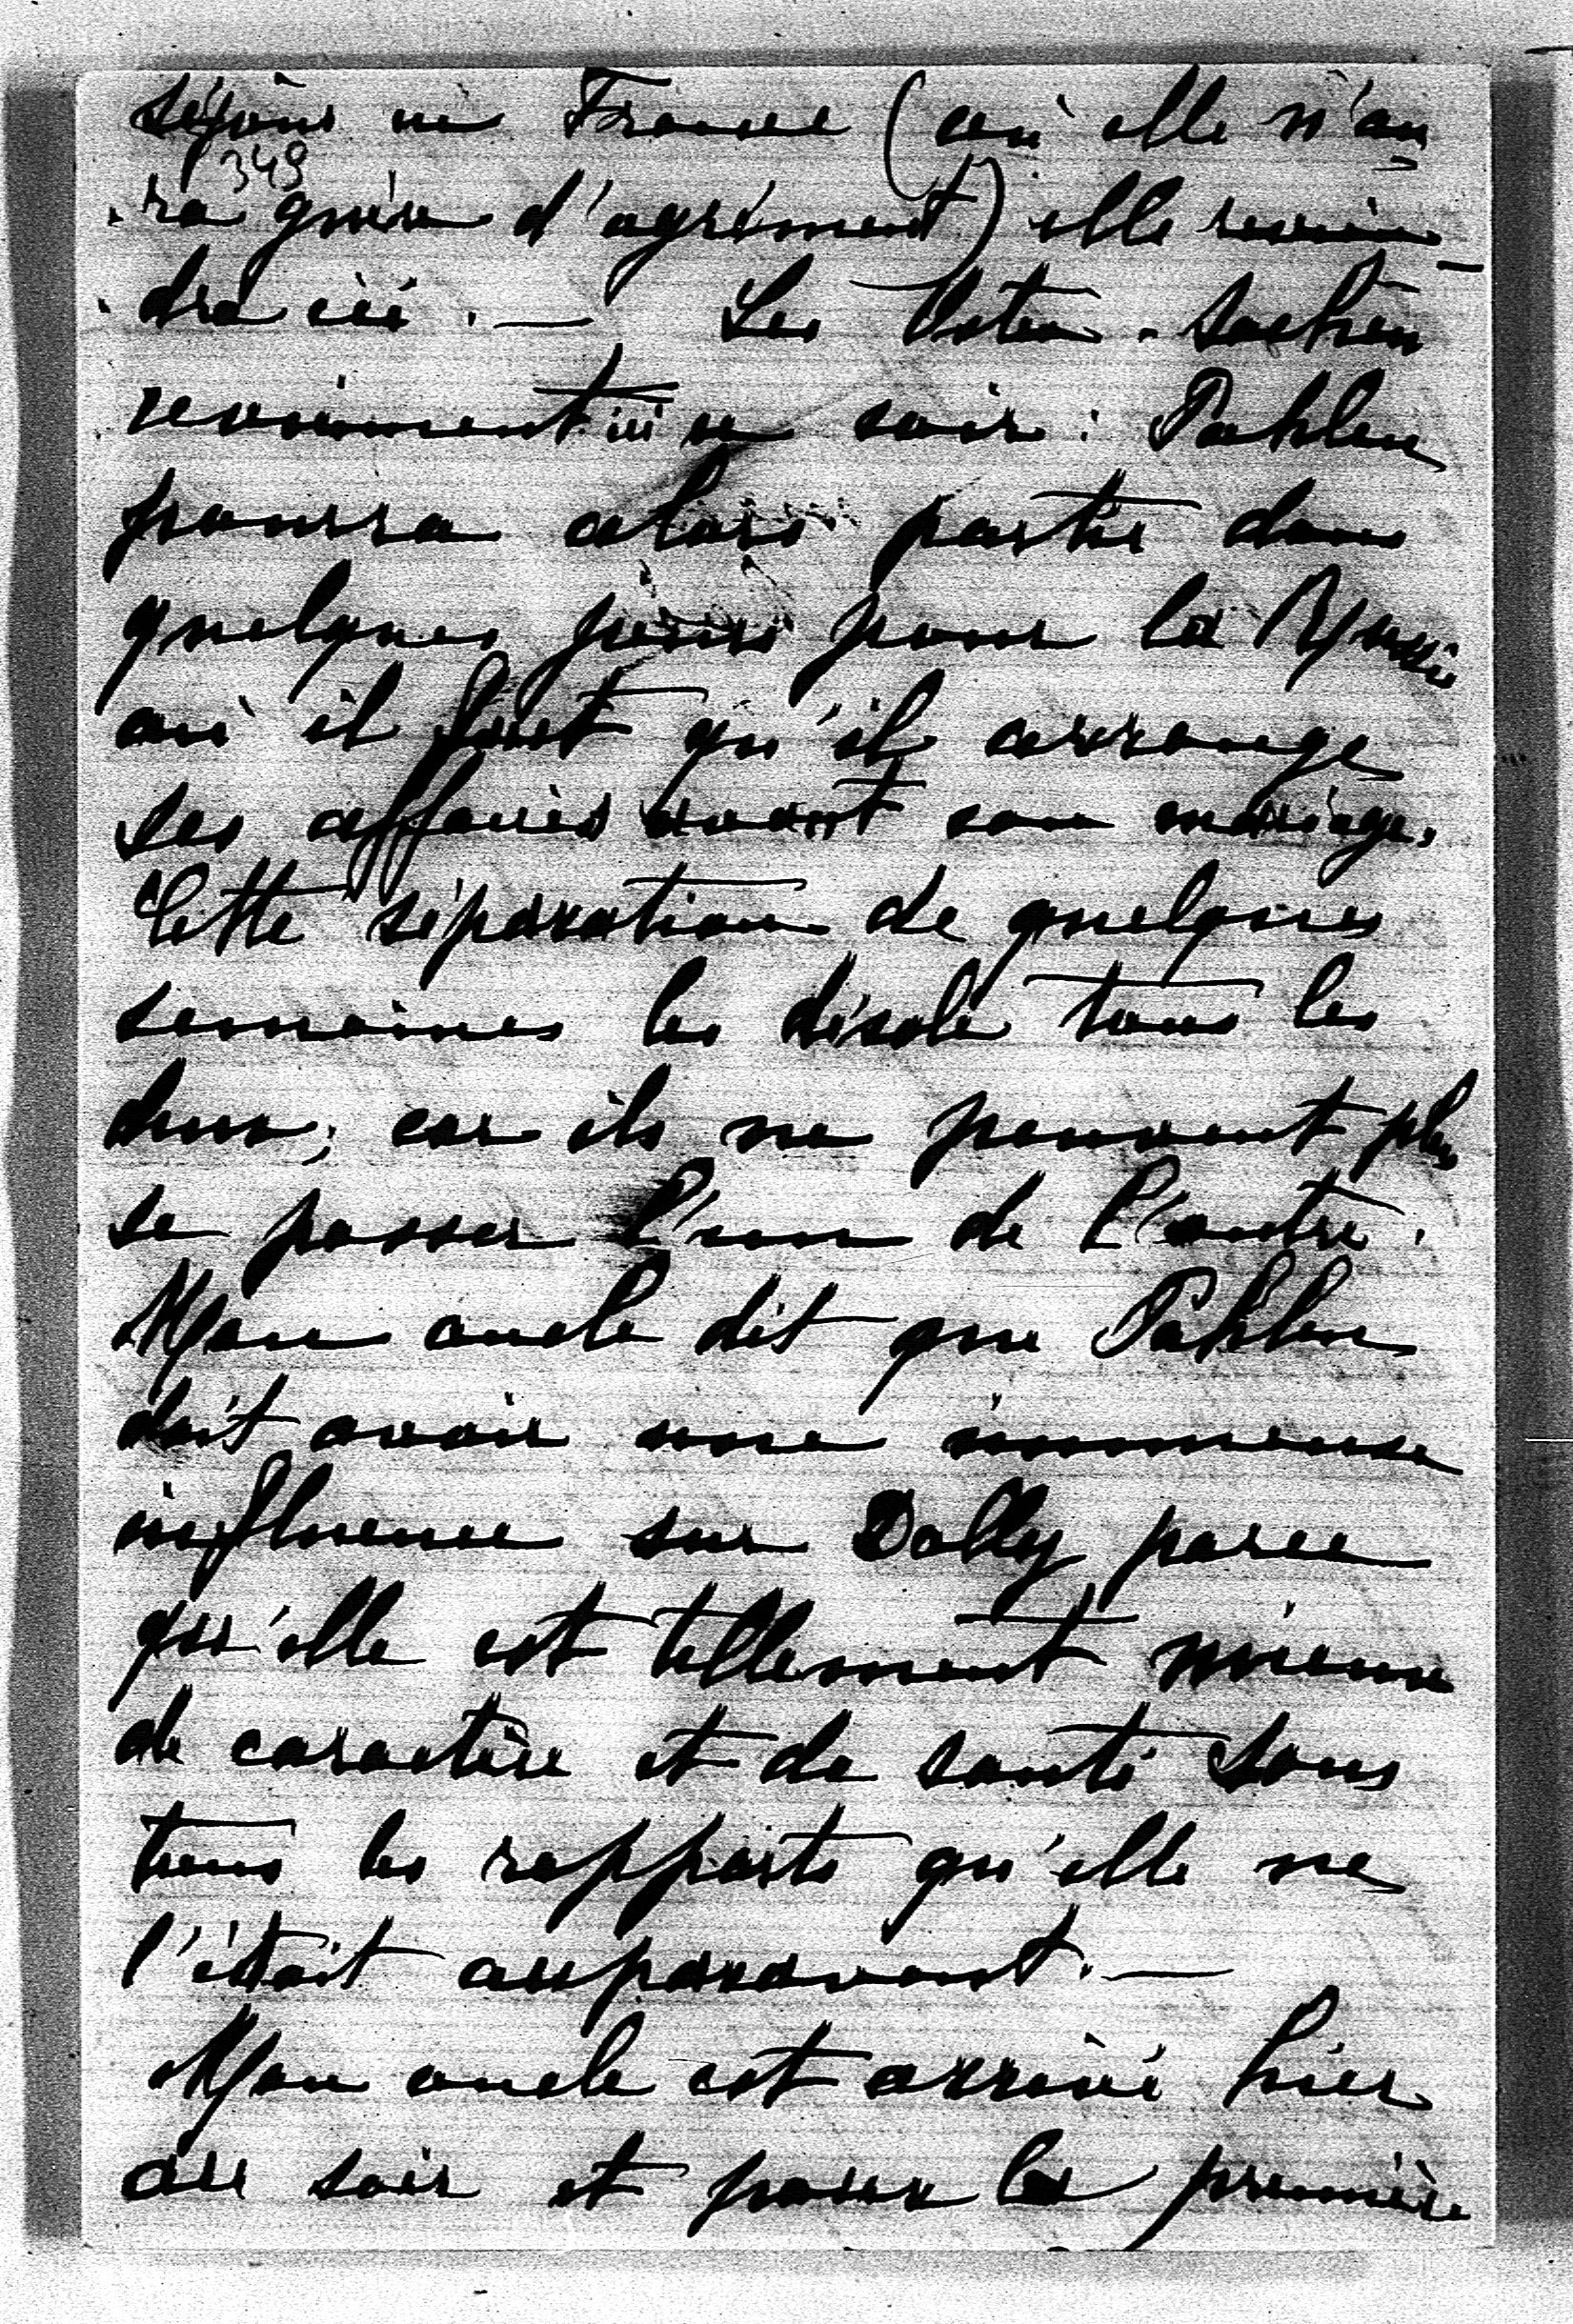 séjour en France (où elle n'au-
349
-ra guère d'agrément) elle revien-
-dra ici. — Les Osten-Sacken
reviennent ici ce soir : Pahlen
pourra alors partir dans
quelques jours pour la Russie
où il faut qu'il arrange
ses affaires avant son mariage.
Cette séparation de quelques
semaines les désole tous les
deux; car ils ne peuvent plus
se passer l'un de l'autre.
Mon oncle dit que Pahlen
doit avoir une immense
influence sur Dolly parce
qu'elle est tellement mieux
de caractère et de santé sous
tous les rapports qu'elle ne
l'était auparavant. —
Mon oncle est arrivé hier
au soir et pour la première